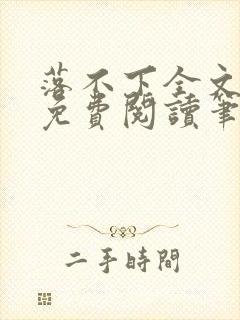 落不下全文
免費閱讀筆
二手時間